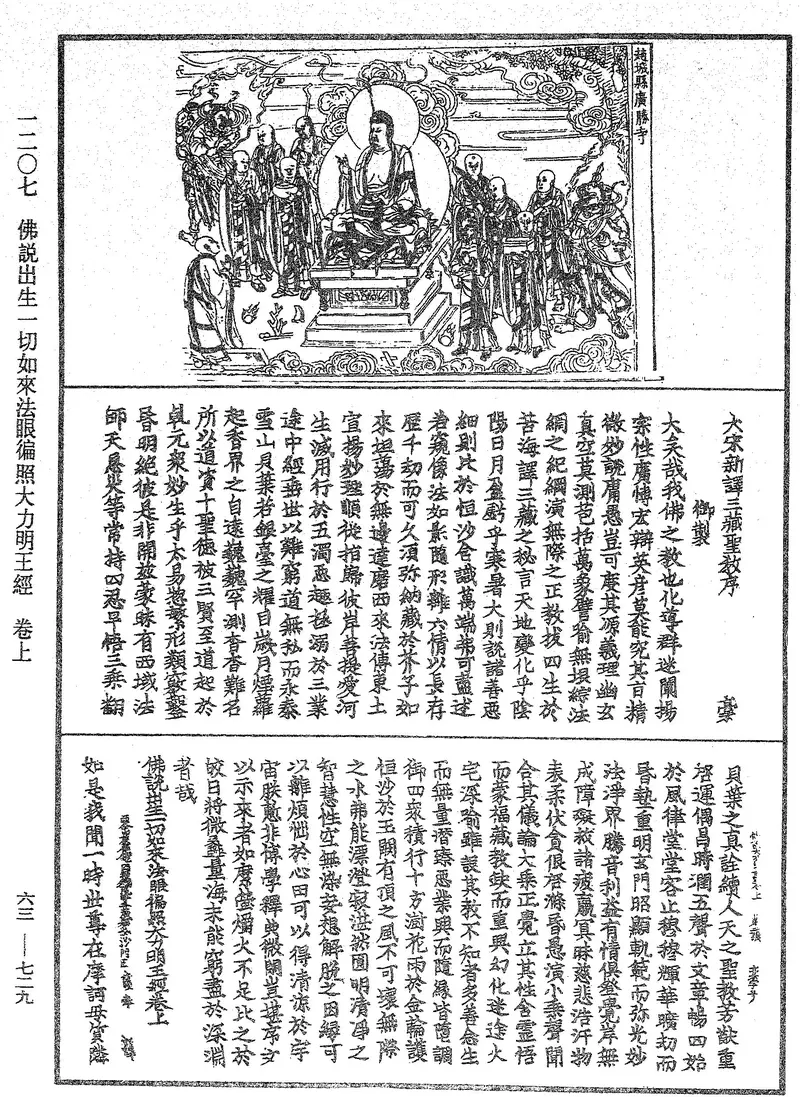 趙城縣廣勝寺
大宋新譯三藏聖教序
御製
大矣哉我佛之教也化導群迷闡揚
宗性廣博宏辯英彥莫能究其旨精
微妙說庸愚豈可度其源義理幽玄
真空莫測苞括萬象譬喻無垠綜法
網之紀綱演無際之正教拔四生於
苦海譯三藏之秘言天地變化乎陰
陽日月盈虧乎寒暑大則說諸善惡
細則比於恒沙含識萬端弗可盡述
若窺像法如影隨形離六情以長存
歷千劫而可久須弥納藏於芥子如
來坦蕩於無邊達磨西來法傳東土
宣揚妙理順從指歸彼岸菩提愛河
生滅用行於五濁惡趣拯溺於三業
途中經垂世以難窮道無私而永泰
雪山貝葉若銀臺之耀目歲月煙蘿
起香界之自遠巍巍罕測杳杳難名
所以道資十聖德被三賢至道起於
乹元衆妙生乎太易揔繁形類竅鑿
昏明絕彼是非開茲蒙昧有西域法
師天息災等常持四忍早悟三乘翻
貝葉之真詮續人天之聖教芳猷重
啓運偶昌時潤五聲於文章暢四始
於風律堂堂容止穆穆輝華曠劫而
昏墊重明玄門昭顯軌範而弥光妙
法淨界騰音利益有情俱登覺岸無
成障礙救諸疲羸冥昧慈悲浩汗物
表柔伏貪很啓滌昏愚演小乘聲聞
合其儀論大乘正覺立其性含靈悟
而蒙福藏教缺而重興幻化迷途火
宅深喻雖設其教不知者多善念生
而無量潛臻惡業興而隨緣皆墮調
御四衆積行十方澍花雨於金輪護
恒沙於玉闕有頂之風不可壞無際
之水弗能漂澄寂湛然圓明清淨之
智慧性空無染妄想解脫之因緣可
以離煩惱於心田可以得清凉於宇
宙朕慙非博學釋典微閑豈堪序文
以示來者如摩螢爝火不足比之於
皎日將微蠡量海未能窮盡於深淵
者哉
佛說出生一切如來法眼徧照大力明王經卷上
如是我聞一時世尊在摩訶毋質隣
一二〇七 佛説出生一切如來法眼徧照大力明王經 卷上
六三—七二九